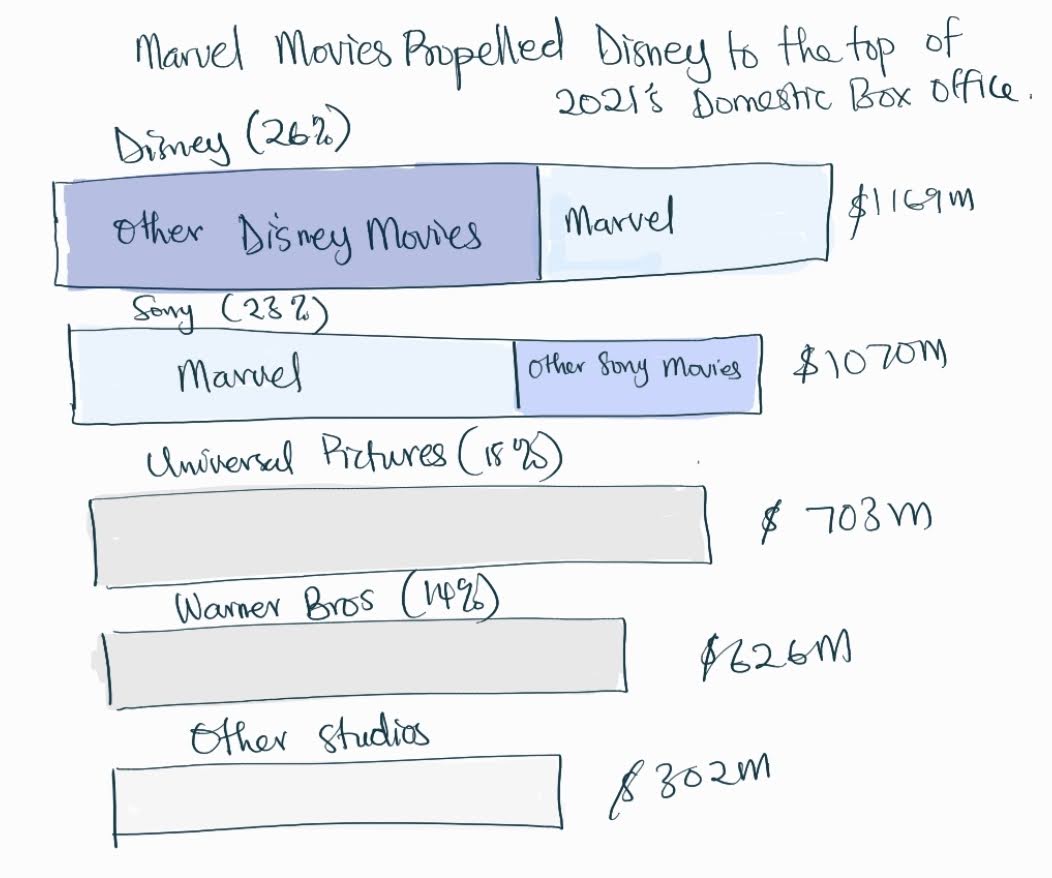 Marvel Movies Propelled Disney to the top of
2021's Domestic Box Office.
Disney (26%)
Other Disney Movies Marvel $1169m
Sony (23%)
Marvel Other Sony Movies $1070M
Universal Pictures (15%)
$ 703m
Warner Bros (14%)
$626M
Other studios
$302M